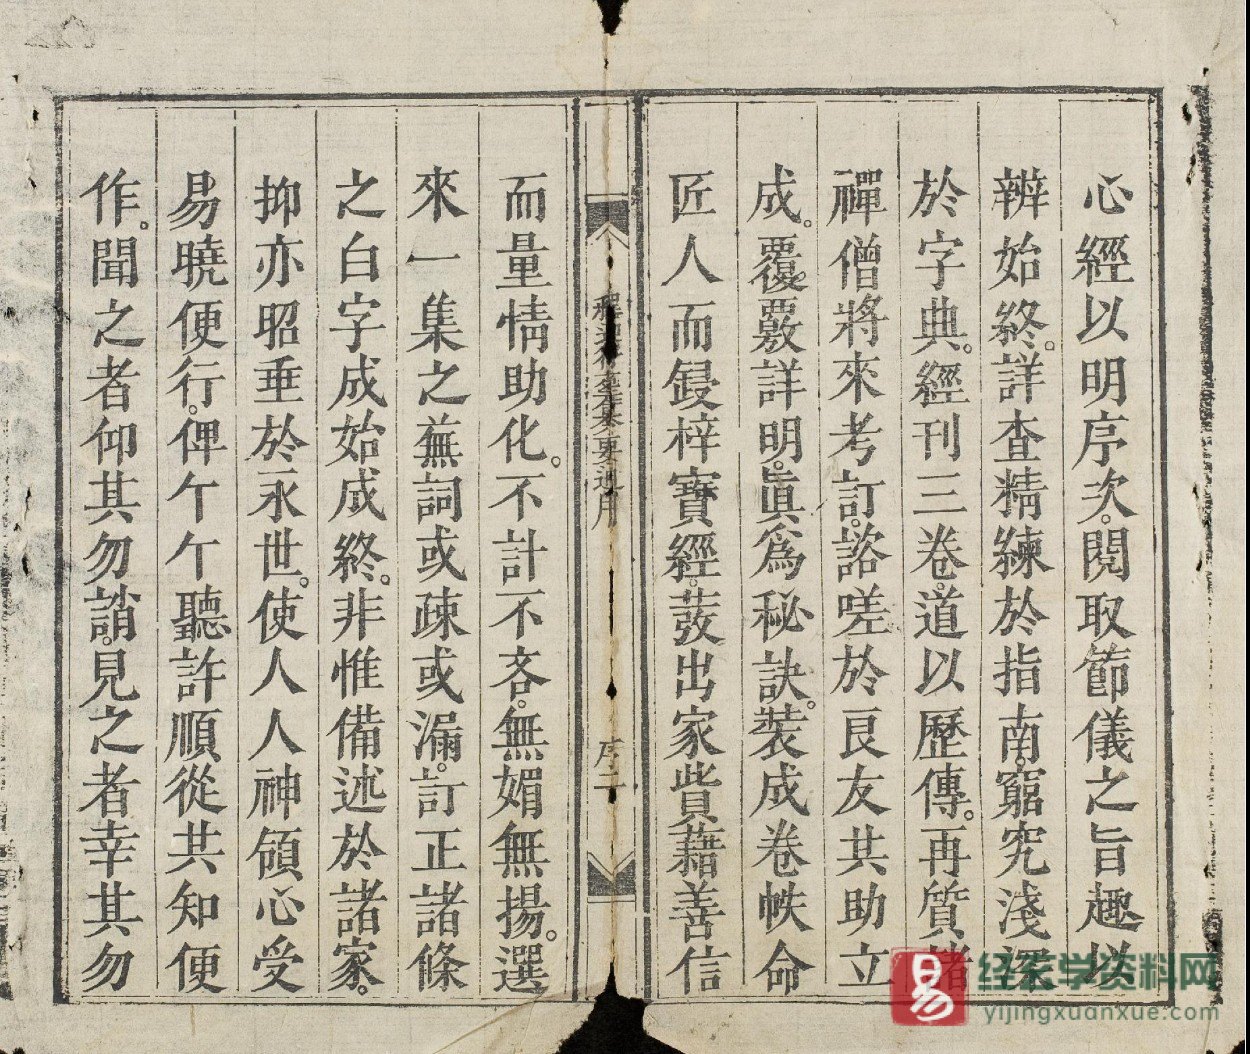 心經以明序次。閱取節儀之旨趣
辨始終。詳查精練於指南。窮究淺深
於字典。經刊三卷。道以歷傳。再質諸
禪僧將來考訂。諮嗟於良友共助立
成。覆覈詳明。眞爲秘訣。裝成卷帙命
匠人而鋟梓寶經。發出家貲藉善信
序二
而量情助化。不計不吝。無媚無揚。選
來一集之蕪詞或疎或漏。訂正諸條
之白字成始成終。非惟備述於諸家。
抑亦昭垂於永世。使人人神領心受
易曉便行。俾个个聽許順從共知便
作。聞之者仰其勿誚。見之者幸其勿
经玄学资料网
yijingxuanxue.com
易